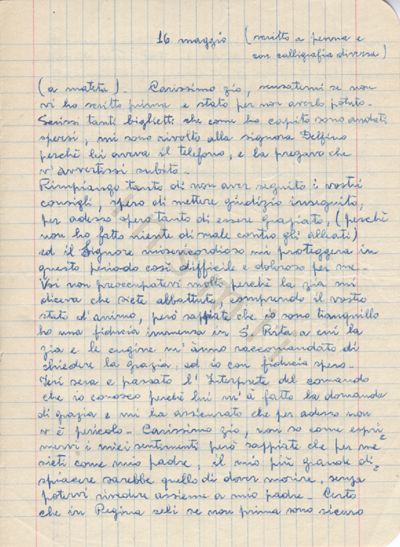 16 maggio (scritto a penna e
con calligrafia diversa)
(a matita). Carissimo zio, scusatemi se non
vi ho scritto prima e stato per non averlo potuto.
Scrissi tanti biglietti che come ho capito sono andati
spersi, mi sono rivolto alla signora Delfino
perchè lei aveva il telefono, e la pregavo che
v'avvertissi subito.
Rimpiango tanto di non aver seguito i vostri
consigli, spero di mettere giudizio inseguito,
per adesso spero tanto di essere graziato, (perchè
non ho fatto niente di male contro gl'alleati)
ed il Signore misericordioso mi proteggerà in
questo periodo così difficile e doloroso per me.
Voi non preoccupatevi molto perchè la zia mi
diceva che siete abbattuto, comprendo il vostro
stato d'animo, però sappiate che io sono tranquillo
ho una fiducia immensa in S. Rita, a cui la
zia e le cugine m'ànno raccomandato di
chiedere la grazia, ed io con fiducia spero.
Ieri sera è passato l'Interprete del comando
che io conosco perchè lui m'à fatto la domanda
di grazia e mi ha assicurato che per adesso non
v'è pericolo. Carissimo zio, non so come espri=
mervi i miei sentimenti però sappiate che per me
siete come mio padre, il mio più grande di=
spiacere sarebbe quello di dover morire, senza
potervi rivedere assieme a mio padre. Certo
che in Regina celi se non prima sono sicuro